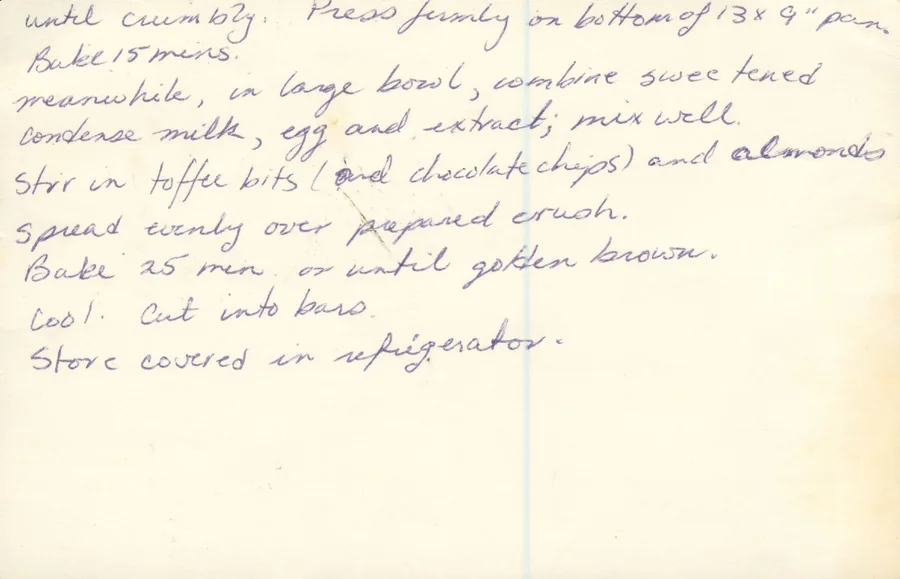 until crumbly. Press firmly on bottom of 13x9" pan.
Bake 15 mins.
meanwhile, in large bowl, combine sweetened
condense milk, egg and extract; mix well.
Stir in toffee bits (and chocolate chips) and almonds
spread evenly over prepared crush.
Bake 25 min or until golden brown.
Cool. Cut into bars.
Store covered in refrigerator.